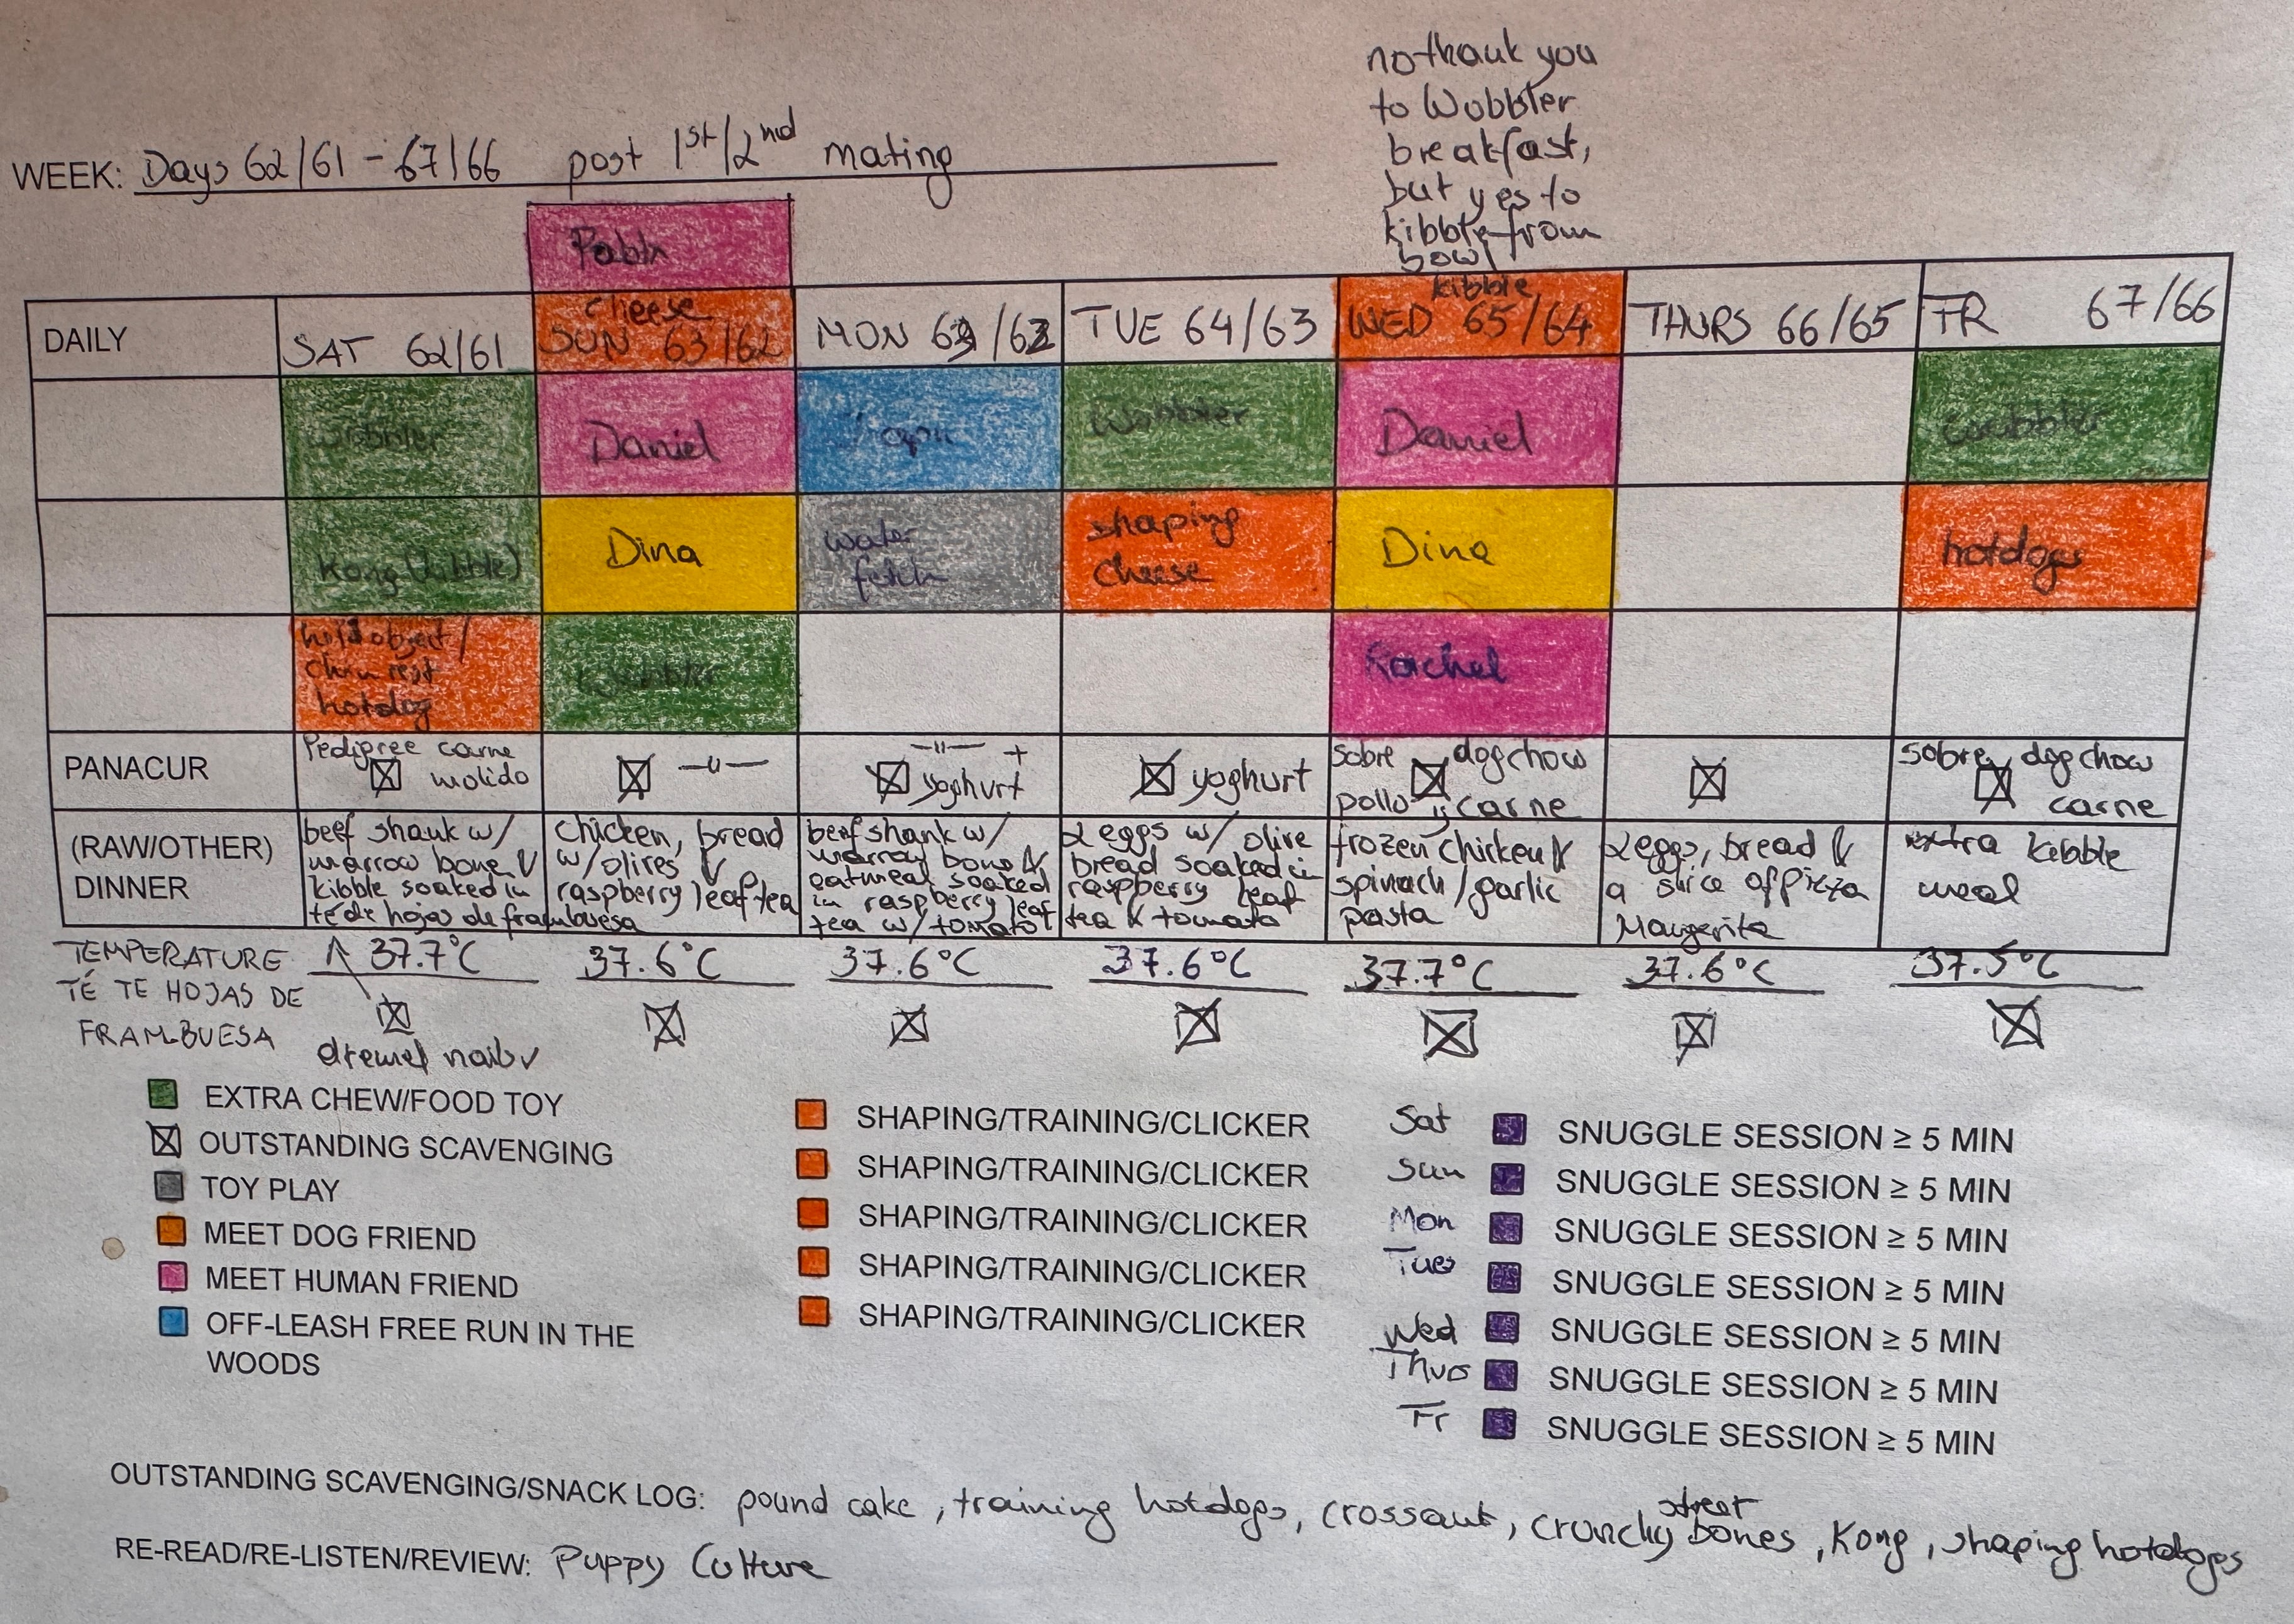 no thank you
to Wobbler
breakfast,
but yes to
kibble from
bowl
WEEK: Days 62/61 - 67/66 post 1st/2nd mating
Pablo
cheese
kibble
DAILY
SAT 62/61
SUN 63/62
MON 63/62
TUE 64/63
WED 65/64
THURS 66/65
FR 67/66
Wobbler
Daniel
Wobbler
Daniel
Wobbler
Kong (kibble)
Dina
water
fetch
shaping
cheese
Dina
hotdogs
hold object/
chin rest
hotdog
Wobbler
Rachel
PANACUR
Pedigree carne
molido
—"—
—"— +
yoghurt
yoghurt
sobre dogchow
pollo y carne
sobre dogchow
carne
(RAW/OTHER)
DINNER
beef shank w/
marrow bone &
kibble soaked in
té de hojas de frambuesa
chicken, bread
w/olives &
raspberry leaf tea
beef shank w/
marrow bone &
oatmeal soaked
in raspberry leaf
tea w/ tomato
2 eggs w/ olive
bread soaked in
raspberry leaf
tea & tomato
frozen chicken &
spinach/garlic
pasta
2 eggs, bread &
a slice of pizza
Margerita
extra kibble
meal
TEMPERATURE
37.7°C
37.6°C
37.6°C
37.6°C
37.7°C
37.6°C
37.5°C
TÉ TE HOJAS DE
FRAMBUESA
dremel nails
EXTRA CHEW/FOOD TOY
OUTSTANDING SCAVENGING
TOY PLAY
MEET DOG FRIEND
MEET HUMAN FRIEND
OFF-LEASH FREE RUN IN THE
WOODS
SHAPING/TRAINING/CLICKER
SHAPING/TRAINING/CLICKER
SHAPING/TRAINING/CLICKER
SHAPING/TRAINING/CLICKER
SHAPING/TRAINING/CLICKER
Sat SNUGGLE SESSION ≥ 5 MIN
Sun SNUGGLE SESSION ≥ 5 MIN
Mon SNUGGLE SESSION ≥ 5 MIN
Tues SNUGGLE SESSION ≥ 5 MIN
Wed SNUGGLE SESSION ≥ 5 MIN
Thurs SNUGGLE SESSION ≥ 5 MIN
Fr SNUGGLE SESSION ≥ 5 MIN
OUTSTANDING SCAVENGING/SNACK LOG: pound cake, training hotdogs, crossant, crunchy street bones, Kong, shaping hotdogs
RE-READ/RE-LISTEN/REVIEW: Puppy Culture